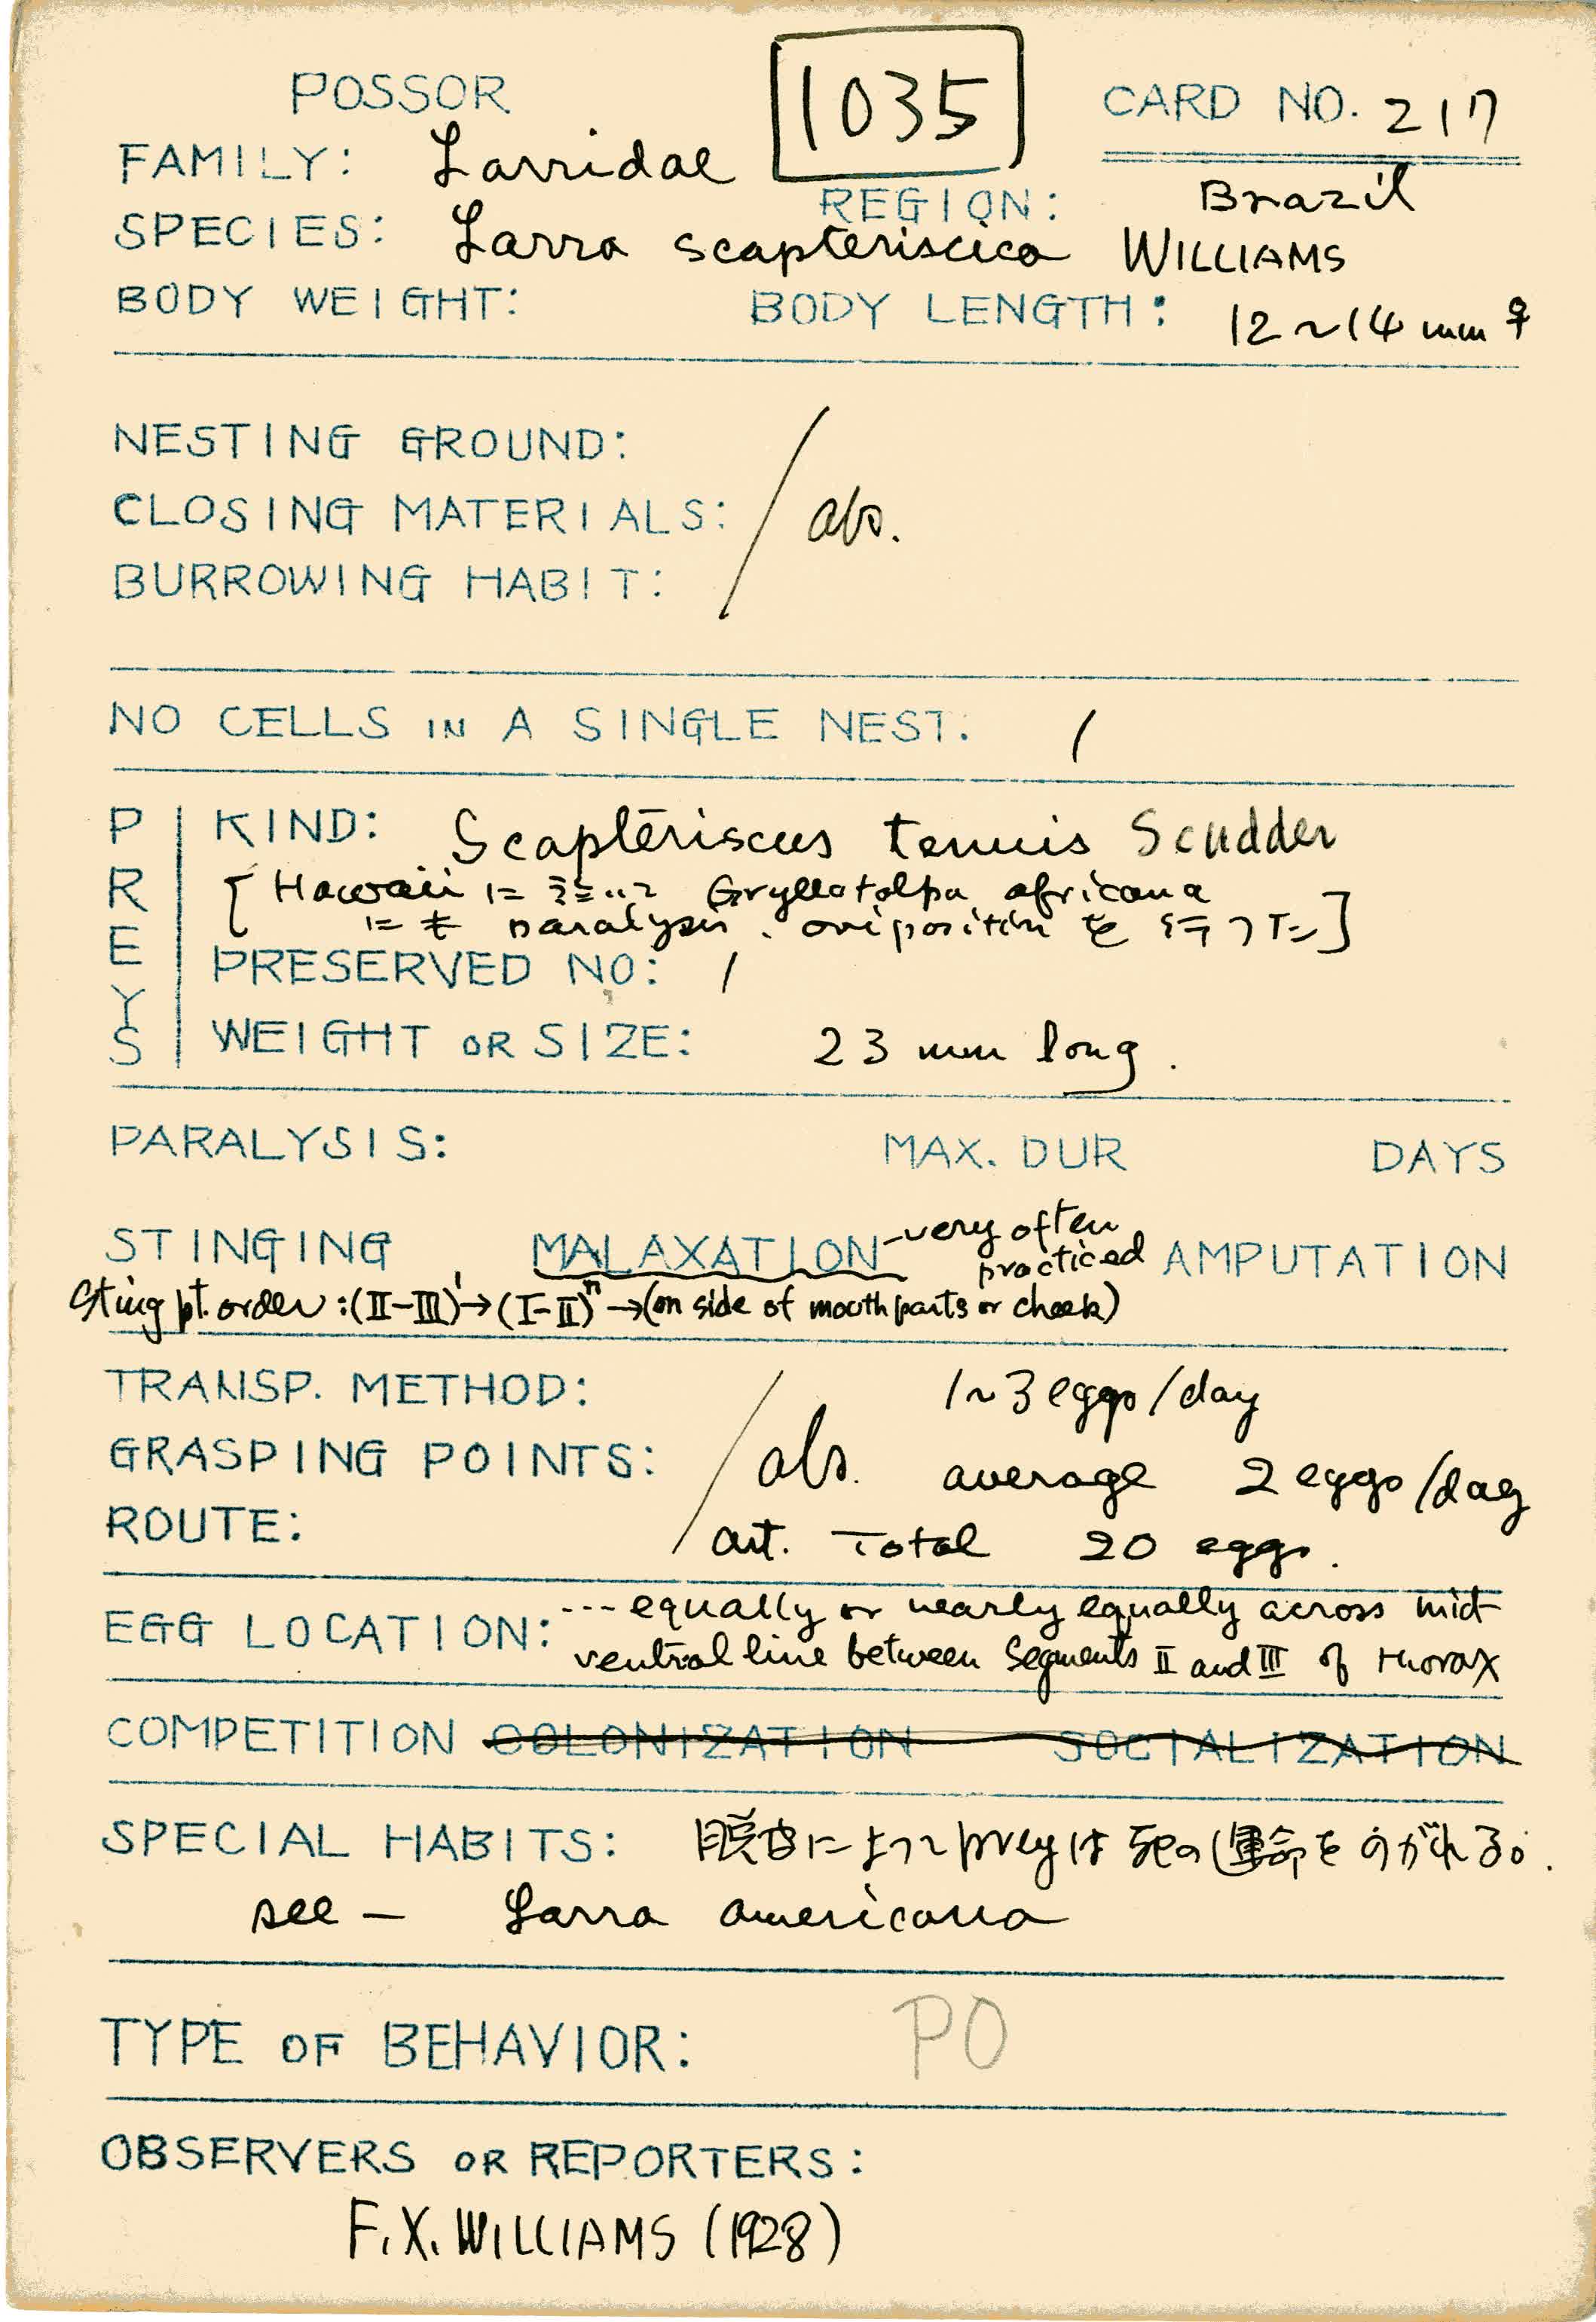 POSSOR
1035
CARD NO. 217
FAMILY: Larridae
REGION: Brazil
SPECIES: Larra scapteriscica WILLIAMS
BODY WEIGHT: BODY LENGTH: 12~14 mm ♀
NESTING GROUND:
CLOSING MATERIALS: / abs.
BURROWING HABIT:
NO CELLS IN A SINGLE NEST: 1
PREYS
KIND: Scapteriscus tenuis Scudder
[Hawaii に Gryllotalpa africana
にも paralysis, oviposition を行った]
PRESERVED NO: 1
WEIGHT OR SIZE: 23 mm long.
PARALYSIS: MAX. DUR DAYS
STINGING, MALAXATION - very often practiced AMPUTATION
Sting pt. order: (II-III)¹→(I-II)ⁿ→(on side of mouthparts or cheek)
TRANSP. METHOD: 1~3 eggs/day
GRASPING POINTS: / abs. average 2 eggs/day
ROUTE: art. Total 20 eggs.
EGG LOCATION: --- equally or nearly equally across mid
ventral line between Segments II and III of thorax
COMPETITION COLONIZATION SOCIALIZATION
SPECIAL HABITS: 脱皮によって prey は死の運命をのがれる。
see - Larra americana
TYPE OF BEHAVIOR: PO
OBSERVERS OR REPORTERS:
F. X. WILLIAMS (1928)